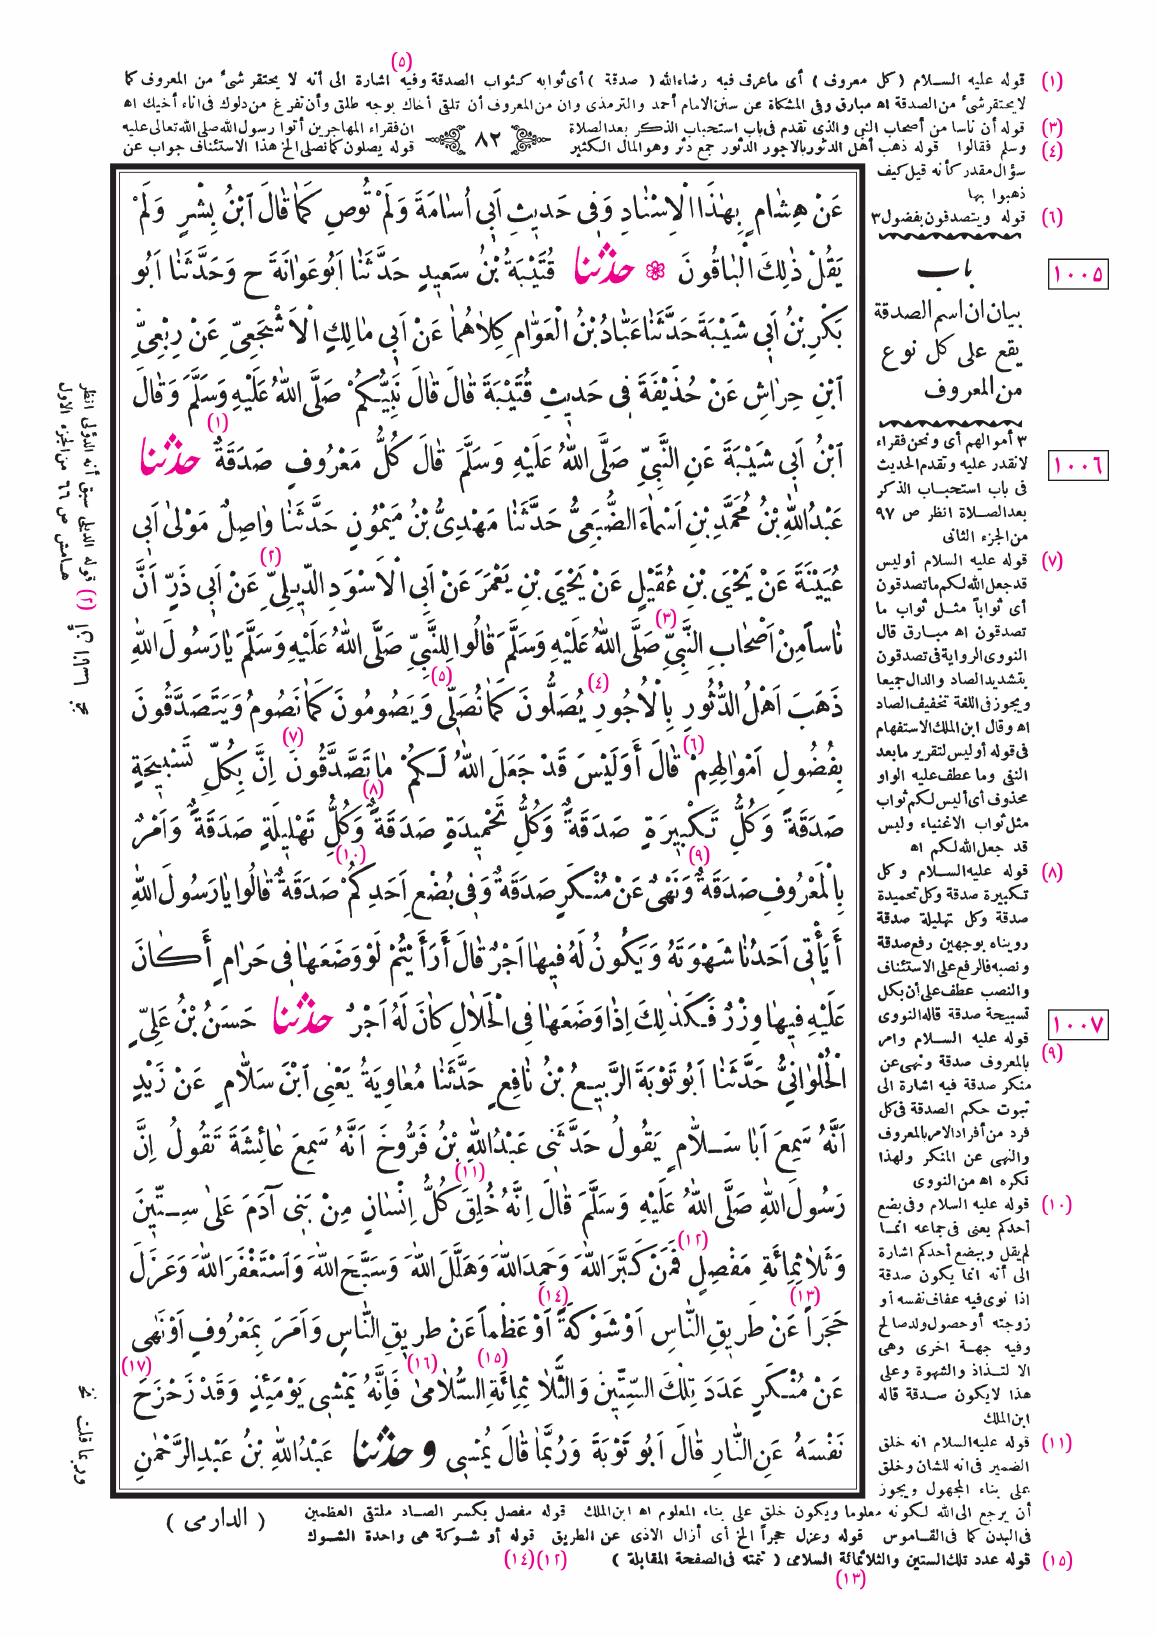 (٥)
(١) قوله عليه السلام (كل معروف) أى ماعرف فيه رضاءالله (صدقة) أى ثوابه كثواب الصدقة وفيه اشارة الى أنه لا يحتقر شئ من المعروف كما
لايحتقرشئ من الصدقة اه مبارق وفى المشكاة عن سنن الامام أحمد والترمذى وان من المعروف أن تلقى أخاك بوجه طلق وأن تفرغ من دلوك فى اناء أخيك اه
(٣) قوله أن ناسا من أصحاب النبى والذى تقدم فى باب استحباب الذكر بعدالصلاة
ان فقراء المهاجرين أتوا رسول الله صلى الله تعالى عليه
٨٢
(٤) وسلم فقالوا قوله ذهب أهل الدثور بالاجور الدثور جمع دثر وهو المال الكثير
قوله يصلون كما نصلى الخ هذا الاستئناف جواب عن
سؤال مقدر كأنه قيل كيف
ذهبوا بها
(٦) قوله ويتصدقون بفضول ٣
عَنْ هِشَامٍ بِهٰذَا الْاِسْنَادِ وَفِى حَدِيثِ اَبِى اُسَامَةَ وَلَمْ تُوصِ كَمَا قَالَ ابْنُ بِشْرٍ وَلَمْ
يَقُلْ ذٰلِكَ الْبَاقُونَ ❁ حدثنا قُتَيْبَةُ بْنُ سَعِيدٍ حَدَّثَنَا اَبُو عَوَانَةَ ح وَحَدَّثَنَا اَبُو
بَكْرِ بْنُ اَبِى شَيْبَةَ حَدَّثَنَا عَبَّادُ بْنُ الْعَوَّامِ كِلَاهُمَا عَنْ اَبِى مَالِكٍ الْاَشْجَعِىِّ عَنْ رِبْعِىِّ
ابْنِ حِرَاشٍ عَنْ حُذَيْفَةَ فِى حَدِيثِ قُتَيْبَةَ قَالَ قَالَ نَبِيُّكُمْ صَلَّى اللّٰهُ عَلَيْهِ وَسَلَّمَ وَقَالَ
(١)
ابْنُ اَبِى شَيْبَةَ عَنِ النَّبِىِّ صَلَّى اللّٰهُ عَلَيْهِ وَسَلَّمَ قَالَ كُلُّ مَعْرُوفٍ صَدَقَةٌ حدثنا
عَبْدُ اللّٰهِ بْنُ مُحَمَّدِ بْنِ اَسْمَاءَ الضُّبَعِىُّ حَدَّثَنَا مَهْدِىُّ بْنُ مَيْمُونٍ حَدَّثَنَا وَاصِلٌ مَوْلَى اَبِى
(٢)
عُيَيْنَةَ عَنْ يَحْيَى بْنِ عُقَيْلٍ عَنْ يَحْيَى بْنِ يَعْمَرَ عَنْ اَبِى الْاَسْوَدِ الدِّيلِىِّ عَنْ اَبِى ذَرٍّ اَنَّ
(٣)
نَاسًا مِنْ اَصْحَابِ النَّبِىِّ صَلَّى اللّٰهُ عَلَيْهِ وَسَلَّمَ قَالُوا لِلنَّبِىِّ صَلَّى اللّٰهُ عَلَيْهِ وَسَلَّمَ يَا رَسُولَ اللّٰهِ
(٤) (٥)
ذَهَبَ اَهْلُ الدُّثُورِ بِالْاُجُورِ يُصَلُّونَ كَمَا نُصَلِّى وَيَصُومُونَ كَمَا نَصُومُ وَيَتَصَدَّقُونَ
(٦) (٧)
بِفُضُولِ اَمْوَالِهِمْ قَالَ أَوَلَيْسَ قَدْ جَعَلَ اللّٰهُ لَكُمْ مَا تَصَّدَّقُونَ اِنَّ بِكُلِّ تَسْبِيحَةٍ
(٨)
صَدَقَةً وَكُلُّ تَكْبِيرَةٍ صَدَقَةٌ وَكُلُّ تَحْمِيدَةٍ صَدَقَةٌ وَكُلُّ تَهْلِيلَةٍ صَدَقَةٌ وَاَمْرٌ
(٩) (١٠)
بِالْمَعْرُوفِ صَدَقَةٌ وَنَهْىٌ عَنْ مُنْكَرٍ صَدَقَةٌ وَفِى بُضْعِ اَحَدِكُمْ صَدَقَةٌ قَالُوا يَا رَسُولَ اللّٰهِ
أَيَأْتِى اَحَدُنَا شَهْوَتَهُ وَيَكُونُ لَهُ فِيهَا اَجْرٌ قَالَ أَرَأَيْتُمْ لَوْ وَضَعَهَا فِى حَرَامٍ أَكَانَ
عَلَيْهِ فِيهَا وِزْرٌ فَكَذٰلِكَ اِذَا وَضَعَهَا فِى الْحَلَالِ كَانَ لَهُ اَجْرٌ حدثنا حَسَنُ بْنُ عَلِىٍّ
الْحُلْوَانِىُّ حَدَّثَنَا اَبُو تَوْبَةَ الرَّبِيعُ بْنُ نَافِعٍ حَدَّثَنَا مُعَاوِيَةُ يَعْنِى ابْنَ سَلَّامٍ عَنْ زَيْدٍ
اَنَّهُ سَمِعَ اَبَا سَلَّامٍ يَقُولُ حَدَّثَنِى عَبْدُ اللّٰهِ بْنُ فَرُّوخَ اَنَّهُ سَمِعَ عَائِشَةَ تَقُولُ اِنَّ
(١١)
رَسُولَ اللّٰهِ صَلَّى اللّٰهُ عَلَيْهِ وَسَلَّمَ قَالَ اِنَّهُ خُلِقَ كُلُّ اِنْسَانٍ مِنْ بَنِى آدَمَ عَلَى سِتِّينَ
(١٢)
وَثَلَاثِمِائَةِ مَفْصِلٍ فَمَنْ كَبَّرَ اللّٰهَ وَحَمِدَ اللّٰهَ وَهَلَّلَ اللّٰهَ وَسَبَّحَ اللّٰهَ وَاسْتَغْفَرَ اللّٰهَ وَعَزَلَ
(١٣) (١٤)
حَجَرًا عَنْ طَرِيقِ النَّاسِ اَوْ شَوْكَةً اَوْ عَظْمًا عَنْ طَرِيقِ النَّاسِ وَاَمَرَ بِمَعْرُوفٍ اَوْ نَهَى
(١٥) (١٦) (١٧)
عَنْ مُنْكَرٍ عَدَدَ تِلْكَ السِّتِّينَ وَالثَّلَاثِمِائَةِ السُّلَامَى فَاِنَّهُ يَمْشِى يَوْمَئِذٍ وَقَدْ زَحْزَحَ
نَفْسَهُ عَنِ النَّارِ قَالَ اَبُو تَوْبَةَ وَرُبَّمَا قَالَ يُمْسِى وحدثنا عَبْدُ اللّٰهِ بْنُ عَبْدِ الرَّحْمٰنِ
١٠٠٥
باب
بيان ان اسم الصدقة
يقع على كل نوع
من المعروف
٣ أموالهم أى ونحن فقراء
١٠٠٦
لانقدر عليه وتقدم الحديث
فى باب استحباب الذكر
بعدالصلاة انظر ص ٩٧
من الجزء الثانى
(٧) قوله عليه السلام أوليس
قد جعل الله لكم ما تصدقون
أى ثوابا مثل ثواب ما
تصدقون اه مبارق قال
النووى الرواية فى تصدقون
بتشديد الصاد والدال جميعا
ويجوز فى اللغة تخفيف الصاد
اه وقال ابن الملك الاستفهام
فى قوله أوليس لتقرير مابعد
النفى وما عطف عليه الواو
محذوف أى أليس لكم ثواب
مثل ثواب الاغنياء وليس
قد جعل الله لكم اه
(٨) قوله عليه السلام وكل
تكبيرة صدقة وكل تحميدة
صدقة وكل تهليلة صدقة
رويناه بوجهين رفع صدقة
ونصبه فالرفع على الاستئناف
والنصب عطف على أن بكل
تسبيحة صدقة قاله النووى
١٠٠٧
(٩) قوله عليه السلام وامر
بالمعروف صدقة ونهى عن
منكر صدقة فيه اشارة الى
ثبوت حكم الصدقة فى كل
فرد من أفراد الامر بالمعروف
والنهى عن المنكر ولهذا
نكره اه من النووى
(١٠) قوله عليه السلام وفى بضع
أحدكم يعنى فى جماعه انما
لم يقل وببضع أحدكم اشارة
الى أنه انما يكون صدقة
اذا نوى فيه عفاف نفسه أو
زوجته أو حصول ولد صالح
وفيه جهة اخرى وهى
الالتذاذ والشهوة وعلى
هذا لايكون صدقة قاله
ابن الملك
(١١) قوله عليه السلام انه خلق
الضمير فى انه للشان وخلق
على بناء المجهول ويجوز
أن يرجع الى الله لكونه معلوما ويكون خلق على بناء المعلوم اه ابن الملك قوله مفصل بكسر الصاد ملتقى العظمين
فى البدن كما فى القاموس قوله وعزل حجراً الخ أى أزال الاذى عن الطريق قوله أو شوكة هى واحدة الشوك
( الدارمى )
(١٥) قوله عدد تلك الستين والثلاثمائة السلامى ( تتمته فى الصفحة المقابلة )
(١٢)(١٤)
(١٣)
(٢) قوله الديلى سبق أنه الدؤلى انظر
هامش ص ٦٦ من الجزء الاول